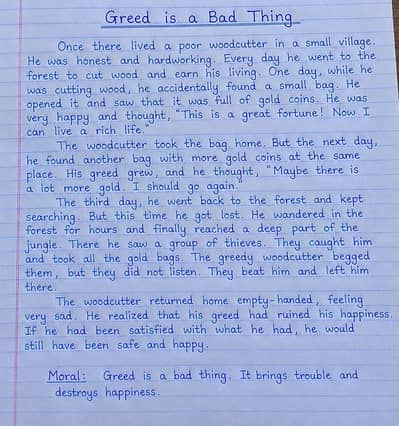 Greed is a Bad Thing
Once there lived a poor woodcutter in a small village.
He was honest and hardworking. Every day he went to the
forest to cut wood and earn his living. One day, while he
was cutting wood, he accidentally found a small bag. He
opened it and saw that it was full of gold coins. He was
very happy and thought, "This is a great fortune! Now I
can live a rich life."
The woodcutter took the bag home. But the next day,
he found another bag with more gold coins at the same
place. His greed grew, and he thought, "Maybe there is
a lot more gold. I should go again."
The third day, he went back to the forest and kept
searching. But this time he got lost. He wandered in the
forest for hours and finally reached a deep part of the
jungle. There he saw a group of thieves. They caught him
and took all the gold bags. The greedy woodcutter begged
them, but they did not listen. They beat him and left him
there.
The woodcutter returned home empty-handed, feeling
very sad. He realized that his greed had ruined his happiness.
If he had been satisfied with what he had, he would
still have been safe and happy.
Moral: Greed is a bad thing. It brings trouble and
destroys happiness.